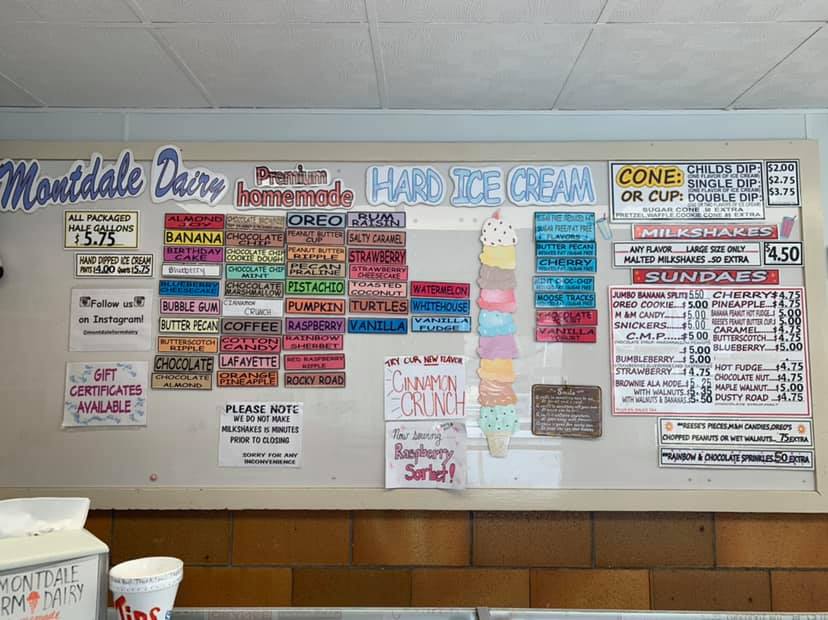 Montdale Dairy
Premium
homemade
HARD ICE CREAM
ALL PACKAGED
HALF GALLONS
$5.75
HAND DIPPED ICE CREAM
PINTS $4.00 Quarts $5.75
Follow us
on Instagram!
@montdalefarmdairy
GIFT
CERTIFICATES
AVAILABLE
ALMOND
JOY
BANANA
BIRTHDAY
CAKE
Blueberry
BLUEBERRY
CHEESECAKE
BUBBLE GUM
BUTTER PECAN
BUTTERSCOTCH
RIPPLE
CHOCOLATE
CHOCOLATE
ALMOND
CHOCOLATE
CHIP
CHOCOLATE CHIP
COOKIE DOUGH
CHOCOLATE CHIP
MINT
CHOCOLATE
CINNAMON
CRUNCH
COFFEE
COTTON
CANDY
LAFAYETTE
ORANGE
PINEAPPLE
OREO
PEANUT BUTTER
CUP
PEANUT BUTTER
RIPPLE
PECAN
PRALINE
PISTACHIO
PUMPKIN
RASPBERRY
RAINBOW
SHERBET
RED RASPBERRY
RIPPLE
ROCKY ROAD
RUM
RAISIN
SALTY CARAMEL
STRAWBERRY
STRAWBERRY
CHEESECAKE
TOASTED
COCONUT
TURTLES
VANILLA
WATERMELON
WHITEHOUSE
VANILLA
FUDGE
PLEASE NOTE
WE DO NOT MAKE
MILKSHAKES 15 MINUTES
PRIOR TO CLOSING
SORRY FOR ANY
INCONVENIENCE
TRY OUR NEW FLAVOR
CINNAMON
CRUNCH
Now serving
Raspberry
Sorbet!
BUTTER PECAN
CHERRY
MINT CHOC-CHIP
MOOSE TRACKS
CHOCOLATE
VANILLA
YOGURT
Smile
CONE:
OR CUP:
CHILDS DIP: $2.00
(ONE FLAVOR OF ICE CREAM)
SINGLE DIP: $2.75
(ONE FLAVOR OF ICE CREAM)
DOUBLE DIP: $3.75
SUGAR CONE .10 EXTRA
PRETZEL,WAFFLE,COOKIE CONE .85 EXTRA
MILKSHAKES
ANY FLAVOR LARGE SIZE ONLY
MALTED MILKSHAKES .50 EXTRA
$4.50
SUNDAES
JUMBO BANANA SPLIT$ 5.50
OREO COOKIE $5.00
M & M CANDY $5.00
SNICKERS $5.00
C.M.P. $5.00
$5.00
BUMBLEBERRY $5.00
STRAWBERRY $4.75
BROWNIE ALA MODE $5.25
WITH WALNUTS
WITH WALNUTS & BANANAS $5.50
CHERRY $4.75
PINEAPPLE $4.75
BANANA PEANUT HOT FUDGE $5.00
REESE'S PEANUT BUTTER CUP $5.00
CARAMEL $4.75
BUTTERSCOTCH $4.75
BLUEBERRY $5.00
HOT FUDGE $4.75
CHOCOLATE NUT $4.75
MAPLE WALNUT $5.00
DUSTY ROAD $4.75
**REESE'S PIECES,M&M CANDIES,OREO'S
CHOPPED PEANUTS OR WET WALNUTS .75 EXTRA
**RAINBOW & CHOCOLATE SPRINKLES .50 EXTRA
MONTDALE
FARM DAIRY
Tips